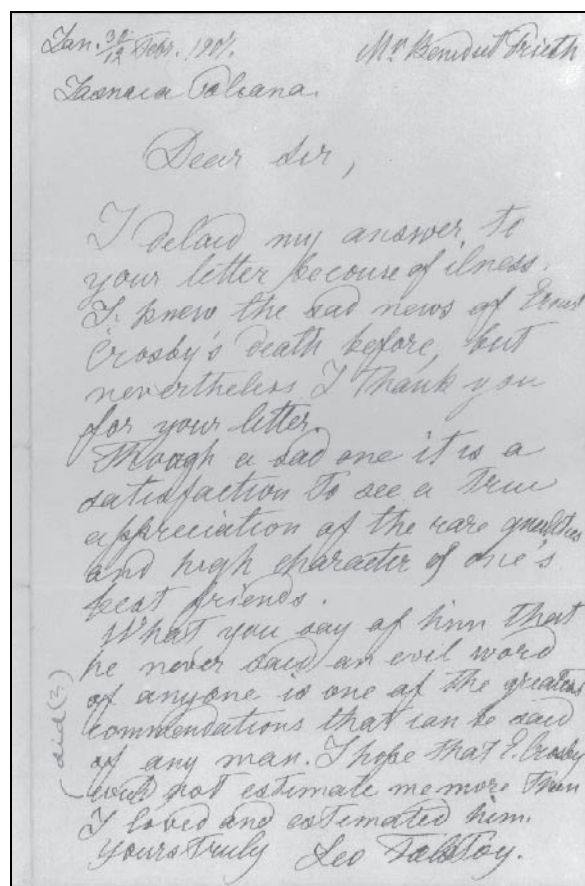 Jan. 30/12 Febr. 1907. Mr Benedict Prieth
Jasnaia Poliana.
Dear Sir,
I delaid my answer to
your letter becouse of ilness.
I knew the sad news of Ernest
Crosby's death before, but
nevertheless I thank you
for your letter.
Though a sad one it is a
satisfaction to see a true
appreciation of the rare qualities
and high character of one's
best friends.
What you say of him that
he never said an evil word
of anyone is one of the greatest
commendations that can be said
of any man. I hope that E. Crosby
did (?)
not estimate me more than
I loved and estimated him.
Yours truly Leo Tolstoy.